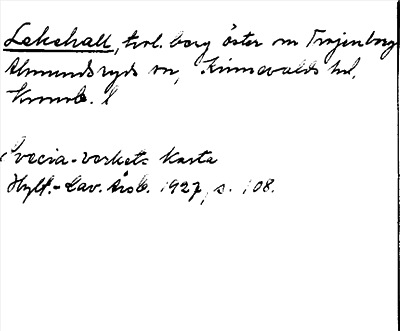 Lekshall, trol. berg öster om Trojenborg
Almundsryds sn, Kinnevalds hd,
Kronob. l
Svecia-verkets Karta
Hylt.-Cav. Årsb. 1927, s. 108.